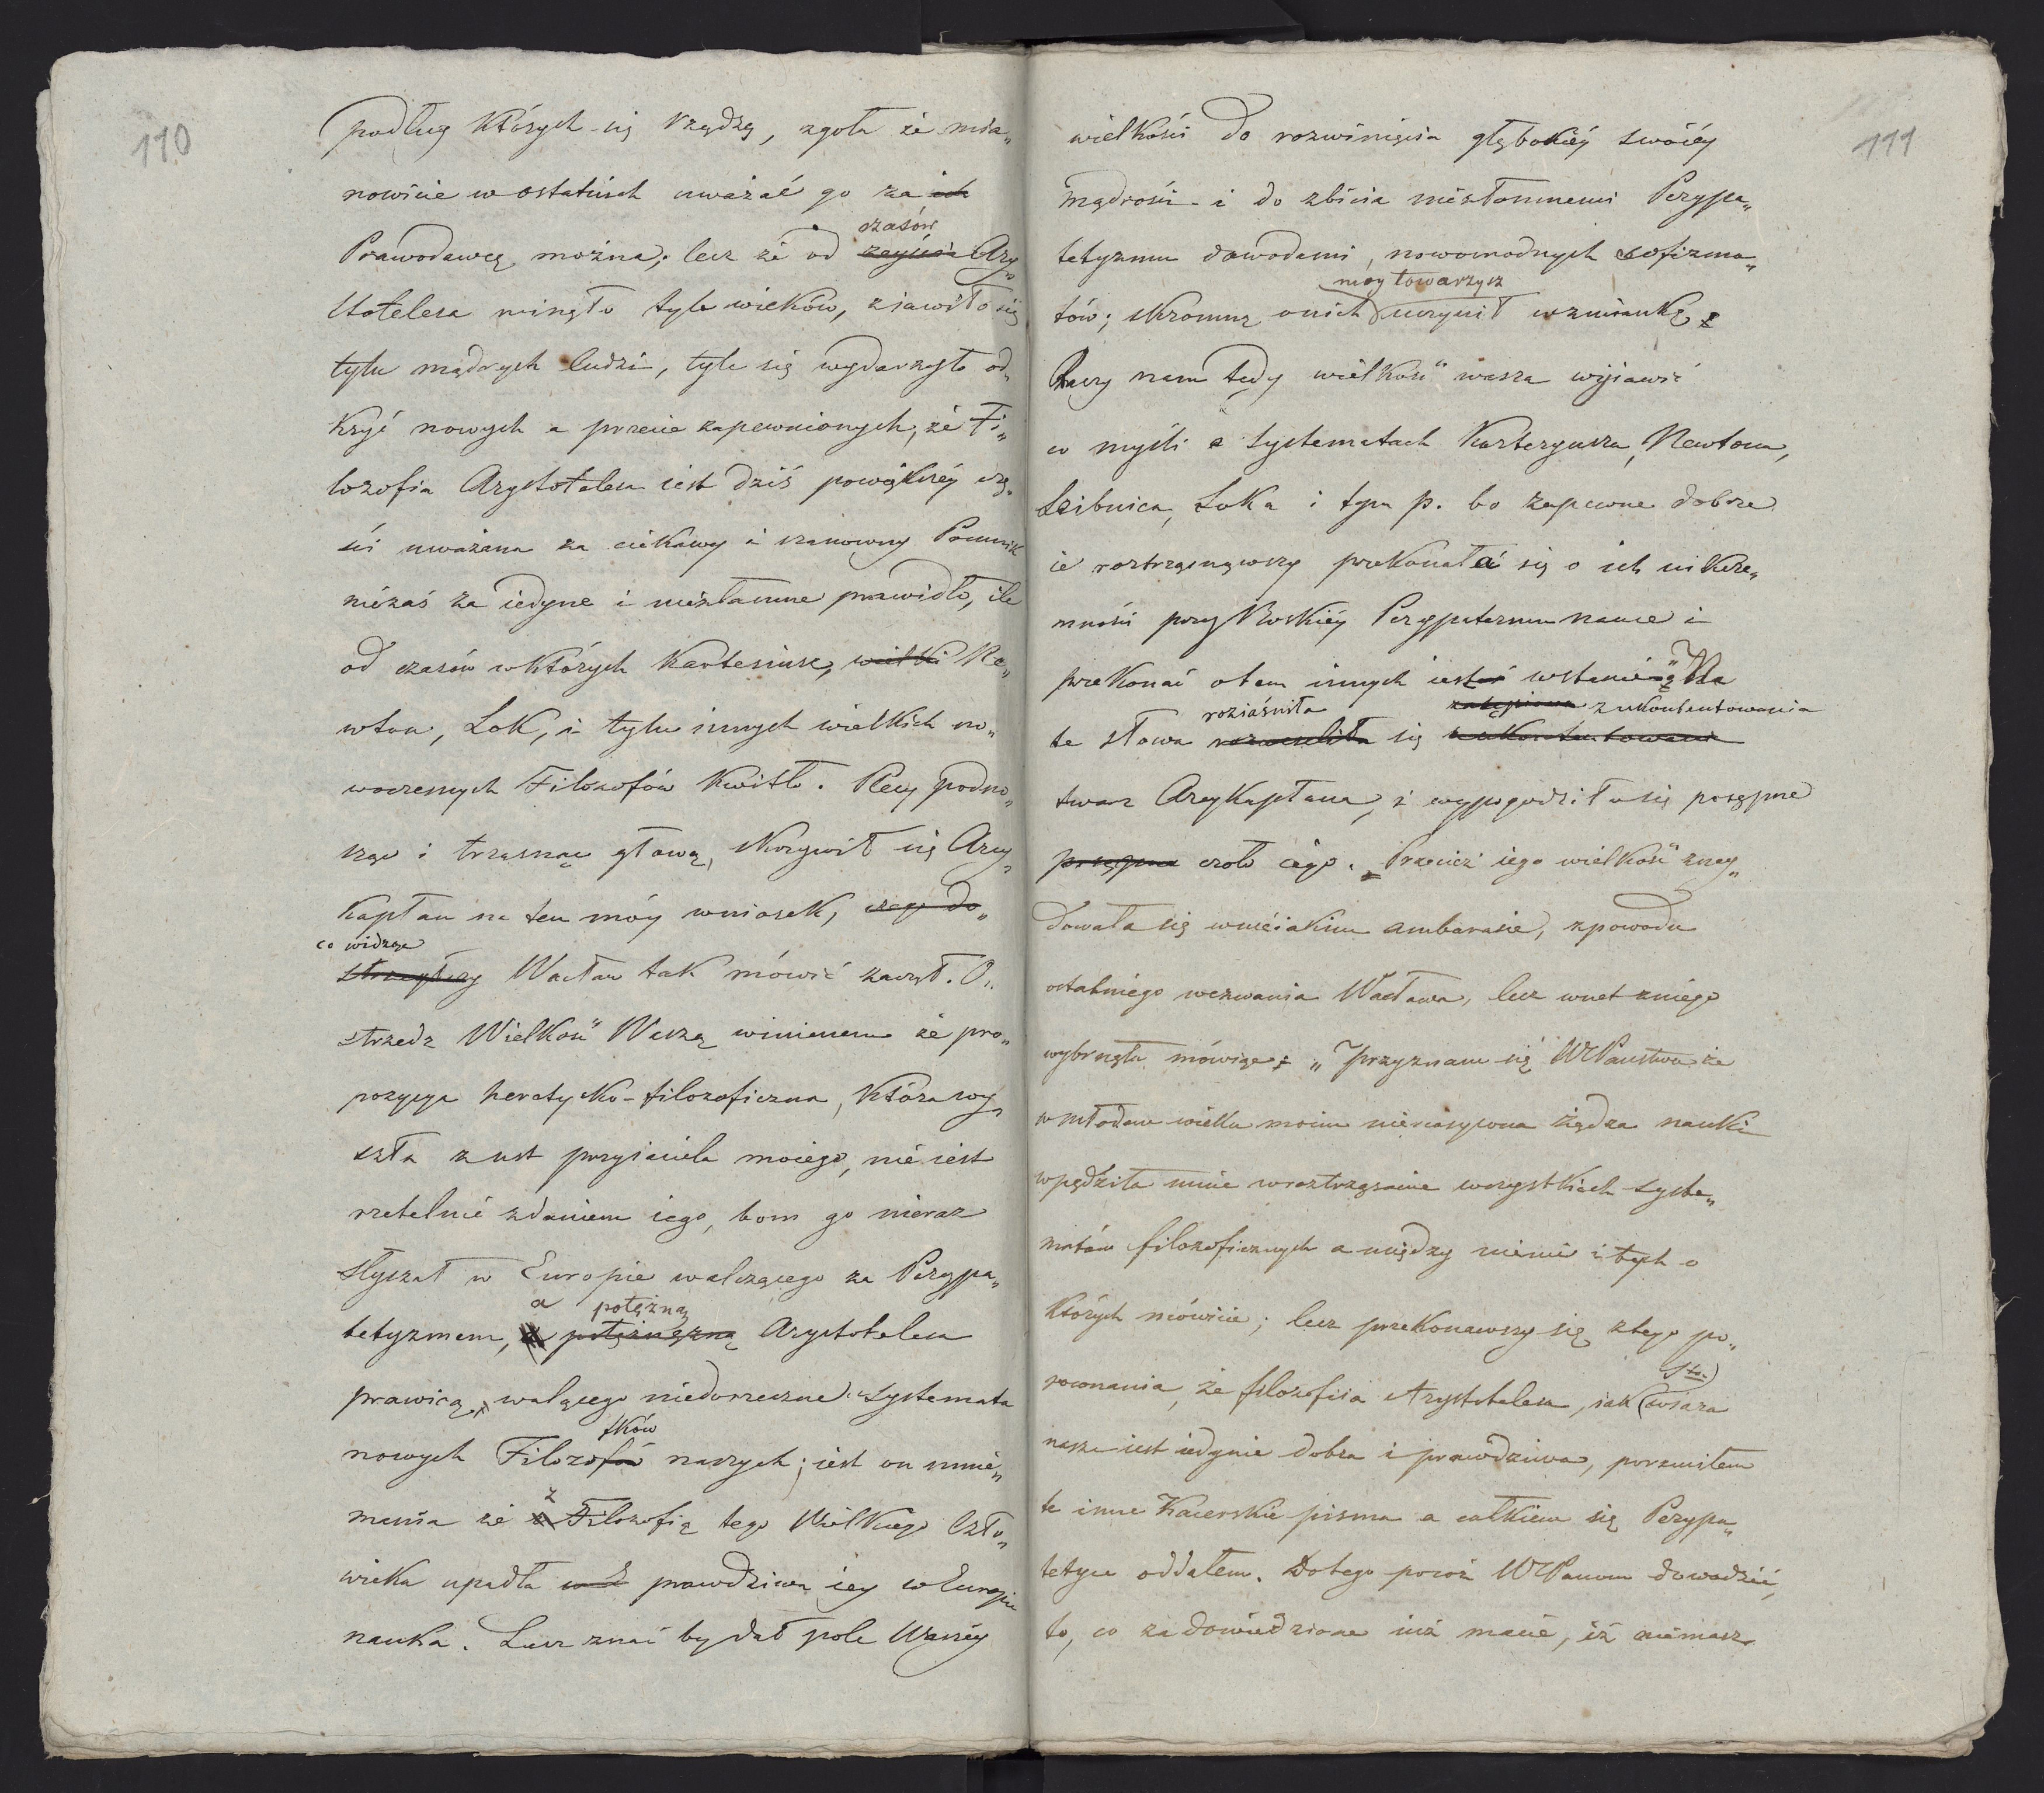 110
podług których się rządzą, zgoła że mia„
nowicie w ostatnich uważać go za ich
czasów
Prawodawcę można; lecz że od zayścia Ary„
stotelesa minęło tyle wieków, ziawiło się
tylu mądrych ludzi, tyle się wydarzyło od„
kryć nowych a przecie zapewnionych, że Fi„
lozofia Arystotelesa iest dziś powiększéy czę„
ści uważana za ciekawy i szanowny Pomnik
niezaś za iedyne i niezłomne prawidło, ile
od czasów w których Kartesiusz, wielki Ne„
wton, Lok, i tylu innych wielkich no„
woczesnych Filozofów kwitło. Plecy podno„
sząc i trząsnąc głową, skrzywił się Arcy„
kapłan na ten móy wniosek, czego do„
co widząc
strzegłszy Wacław tak mówić zaczął. O„
strzedz Wielkość Waszą winienem że pro„
pozycya heretycko-filozoficzna, która wy„
szła z ust przyiaciela moiego, nie iest
rzetelnie zdaniem iego, bom go nieraz
słyszał w Europie walczącego za Perypa„
a potężną
tetyzmem, a potężnęzną Arystotelesa
prawicą, walącego niedorzeczne systemata
fków
nowych Filozofów naszych; iest on mnie„
z
mania że z Filozofią tego Wielkiego Czło„
wieka upadła prawdziwa iey w Europie
nauka. Lecz znać by dał pole Waszéy
111
wielkości do rozwinięcia głębokiéy swoiéy
mądrości i do zbicia niezłomnemi Perypa„
tetyzmu dowodami, nowomodnych sofizma„
móy towarzysz
tów; skromną o nich uczynił wzmiankę
Raczy nam tedy wielkość wasza wyiawić
co myśli o systematach Kartezyusza, Newtona,
Leibnica, Loka i tym p. bo zapewne dobrze
ie roztrząsnąwszy przekonała się o ich nikcze„
mności przy Boskiéy Perypatetyzmu nauce i
przekonać o tem innych iest w stanie„ Na
roziaśniła zasępiona z ukontentowania
te słowa rozweseliła się z ukontentowania
twarz Arcykapłana, i wypogodziło się posępne
posępne czoło iego. Przecież iego wielkość znay„
dowała się w nieiakim ambarasie, z powodu
ostatniego wezwania Wacława, lecz wnet z niego
wybrnęła mówiąc: „Przyznam się WPaństwu że
w młodem wieku moim nienasycona żądza nauki
wpędziła mnie w roztrząsanie wszystkich syste„
matów filozoficznych a między niemi i tych o
których mówicie; lecz przekonawszy się z tego po„
Sta.
rownania, że filozofiia Arystotelesa, iak wiara
nasza iest iedynie dobra i prawdziwa, porzuciłem
te inne kacerskie pisma a całkiem się Perypa„
tetyce oddałem. Dotego pocoż WPanom dowodzić,
to, co za dowiedzione iuż macie, iż niemasz